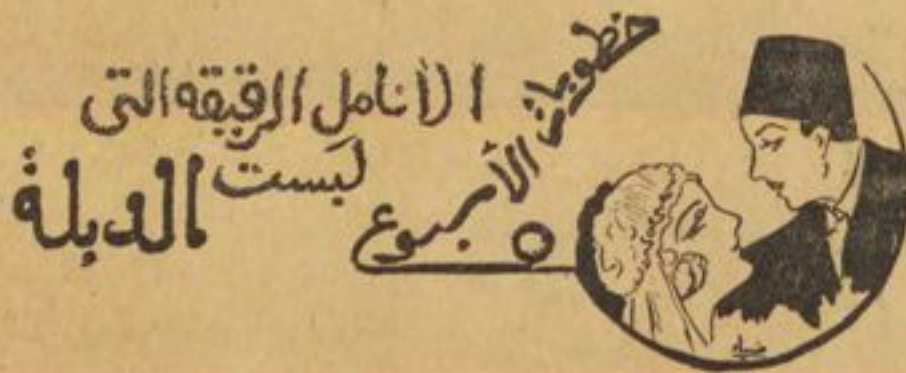 خطوبات الأسبوع
الأنامل الرقيقة التى
لبست الدبلة